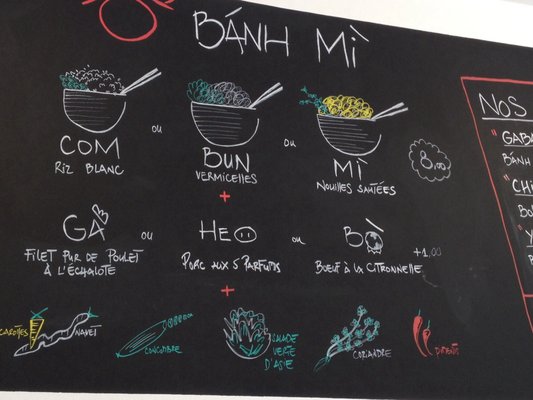 BÁNH MÌ
COM
RIZ BLANC
OU
BUN
VERMICELLES
OU
MÌ
NOUILLES SAUTÉES
8,00
+
GA
FILET PUR DE POULET
À L'ÉCHALOTE
OU
HEO
PORC AUX 5 PARFUMS
OU
BÒ
BŒUF À LA CITRONNELLE
+1,00
+
CAROTTES
NAVET
CONCOMBRE
SALADE
VERTE
D'ASIE
CORIANDRE
PIMENTS
NOS
"GABA
BÁNH
"CHI
BO
"Y
B